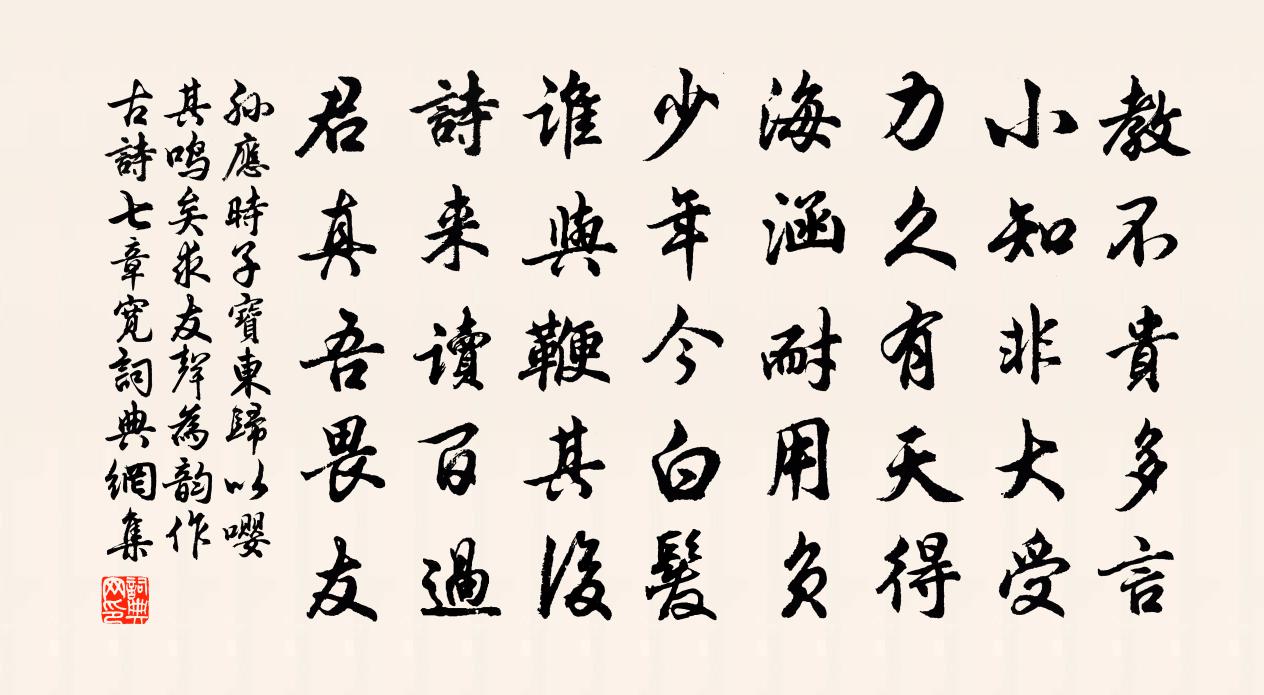 教不貴多言
小知非大受
力久有天得
海涵耐用負
少年今白髮
谁與鞭其後
詩来讀百過
君真吾畏友
孫應時子寶東歸以嚶
其鳴矣求友聲為韵作
古詩七章寬詞典網集
詞典网印